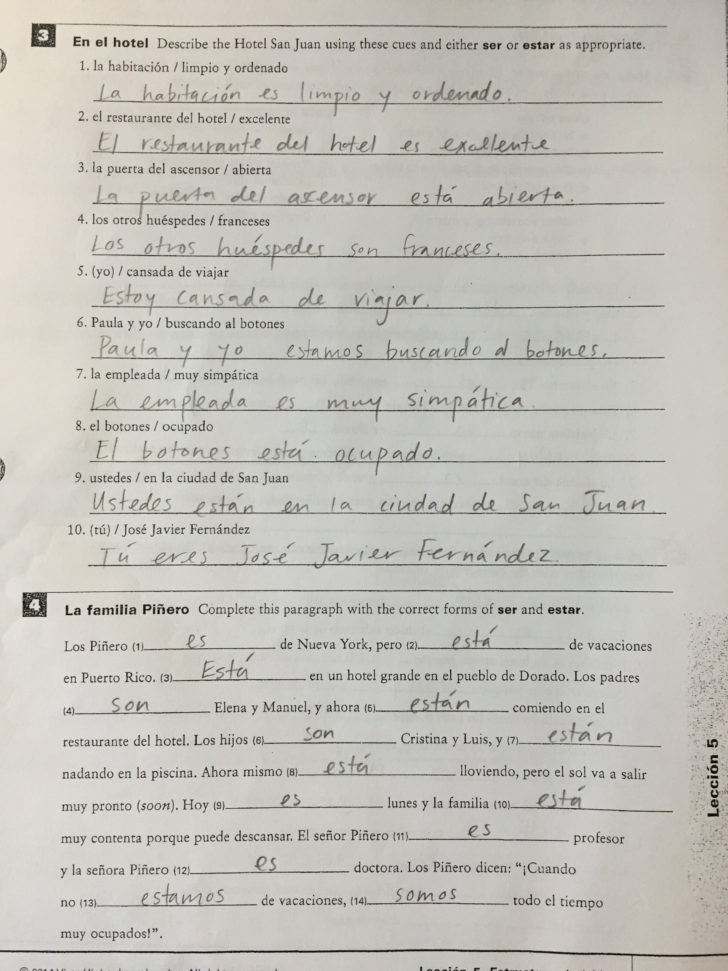 3 En el hotel Describe the Hotel San Juan using these cues and either ser or estar as appropriate.
1. la habitación / limpio y ordenado
La habitación es limpio y ordenado.
2. el restaurante del hotel / excelente
El restaurante del hotel es excellente
3. la puerta del ascensor / abierta
La puerta del ascensor está abierta.
4. los otros huéspedes / franceses
Los otros huéspedes son franceses.
5. (yo) / cansada de viajar
Estoy cansada de viajar.
6. Paula y yo / buscando al botones
Paula y yo estamos buscando al botones.
7. la empleada / muy simpática
La empleada es muy simpática.
8. el botones / ocupado
El botones está ocupado.
9. ustedes / en la ciudad de San Juan
Ustedes están en la ciudad de San Juan.
10. (tú) / José Javier Fernández
Tú eres José Javier Fernández.
4 La familia Piñero Complete this paragraph with the correct forms of ser and estar.
Los Piñero (1) es de Nueva York, pero (2) está de vacaciones
en Puerto Rico. (3) Está en un hotel grande en el pueblo de Dorado. Los padres
(4) son Elena y Manuel, y ahora (5) están comiendo en el
restaurante del hotel. Los hijos (6) son Cristina y Luis, y (7) están
nadando en la piscina. Ahora mismo (8) está lloviendo, pero el sol va a salir
muy pronto (soon). Hoy (9) es lunes y la familia (10) está
muy contenta porque puede descansar. El señor Piñero (11) es profesor
y la señora Piñero (12) es doctora. Los Piñero dicen: “¡Cuando
no (13) estamos de vacaciones, (14) somos todo el tiempo
muy ocupados!”.
Lección 5